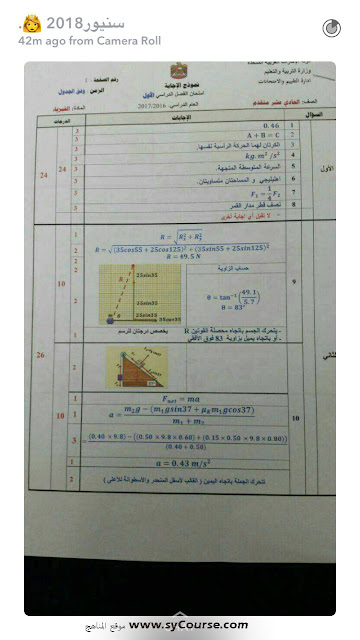 سنيور2018
42m ago from Camera Roll
وزارة التربية والتعليم
ادارة التقييم والامتحانات
نموذج الإجابة
امتحان الفصل الدراسي الأول
العام الدراسي: 2017/2016
رقم الصفحة: 1
الزمن: وفق الجدول
الصف: الحادي عشر متقدم
المادة: الفيزياء
السؤال
الإجابات
الدرجات
الأول
1 0.46 3
2 A + B = C 3
3 الكرتان لهما الحركة الرأسية نفسها. 3
4 kg.m²/s² 3
5 السرعة المتوسطة المتجهة. 3
6 اهليليجي و المساحتان متساويتان. 3
7 F₂ = 1/4 F₁ 3
8 نصف قطر مدار القمر 3
- لا تقبل أي اجابة أخرى
24 24
R = √(Rₓ² + Rᵧ²) 1
R = √((35cos55 + 25cos125)² + (35sin55 + 25sin125)²) 2
R = 49.5 N 2
حساب الزاوية
θ = tan⁻¹(49.1/5.7)
θ = 83°
25sin35
35sin55
35cos55
9
10
- يتحرك الجسم باتجاه محصلة القوتين R
- أو باتجاه يميل بزاوية 83 فوق الأفقي
يخصص درجتان للرسم
26
10
10
F_net = ma 1
a = (m₂g − (m₁gsin37 + μₖm₁gcos37))/(m₁ + m₂) 1
= ((0.40 × 9.8) − ((0.50 × 9.8 × 0.60) + (0.15 × 0.50 × 9.8 × 0.80)))/(0.40 + 0.50) 3
a = 0.43 m/s² 1
تتحرك الجملة باتجاه اليمين ( القالب لأسفل المنحدر والأسطوانة للأعلى ) 2
موقع المناهج www.syCourse.com